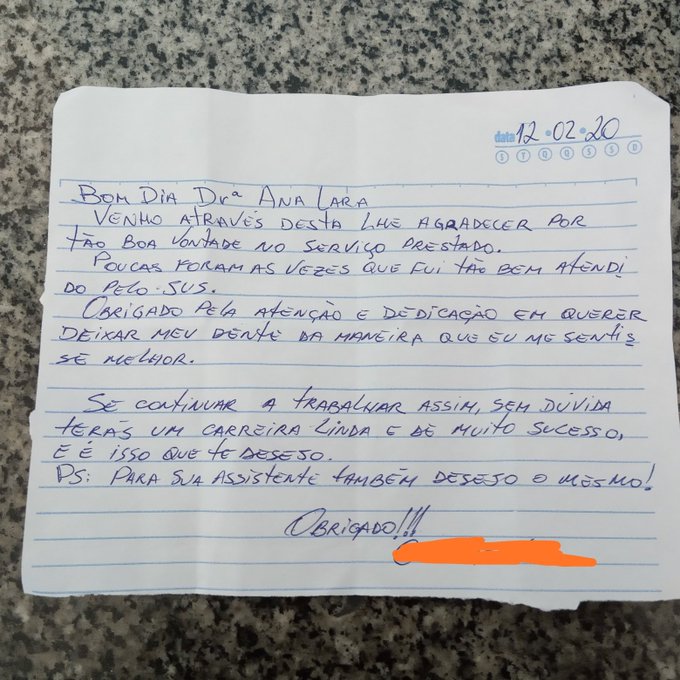 data 12.02.20
S T Q Q S S D
BOM DIA Drª ANA LARA
VENHO ATRAVÉS DESTA LHE AGRADECER POR
TÃO BOA VONTADE NO SERVIÇO PRESTADO.
POUCAS FORAM AS VEZES QUE FUI TÃO BEM ATENDI
DO PELO SUS.
OBRIGADO PELA ATENÇÃO E DEDICAÇÃO EM QUERER
DEIXAR MEU DENTE DA MANEIRA QUE EU ME SENTIS
SE MELHOR.
SE CONTINUAR A TRABALHAR ASSIM, SEM DÚVIDA
TERÁS UM CARREIRA LINDA E DE MUITO SUCESSO,
E É ISSO QUE TE DESEJO.
PS: PARA SUA ASSISTENTE TAMBÉM DESEJO O MESMO!
OBRIGADO!!!